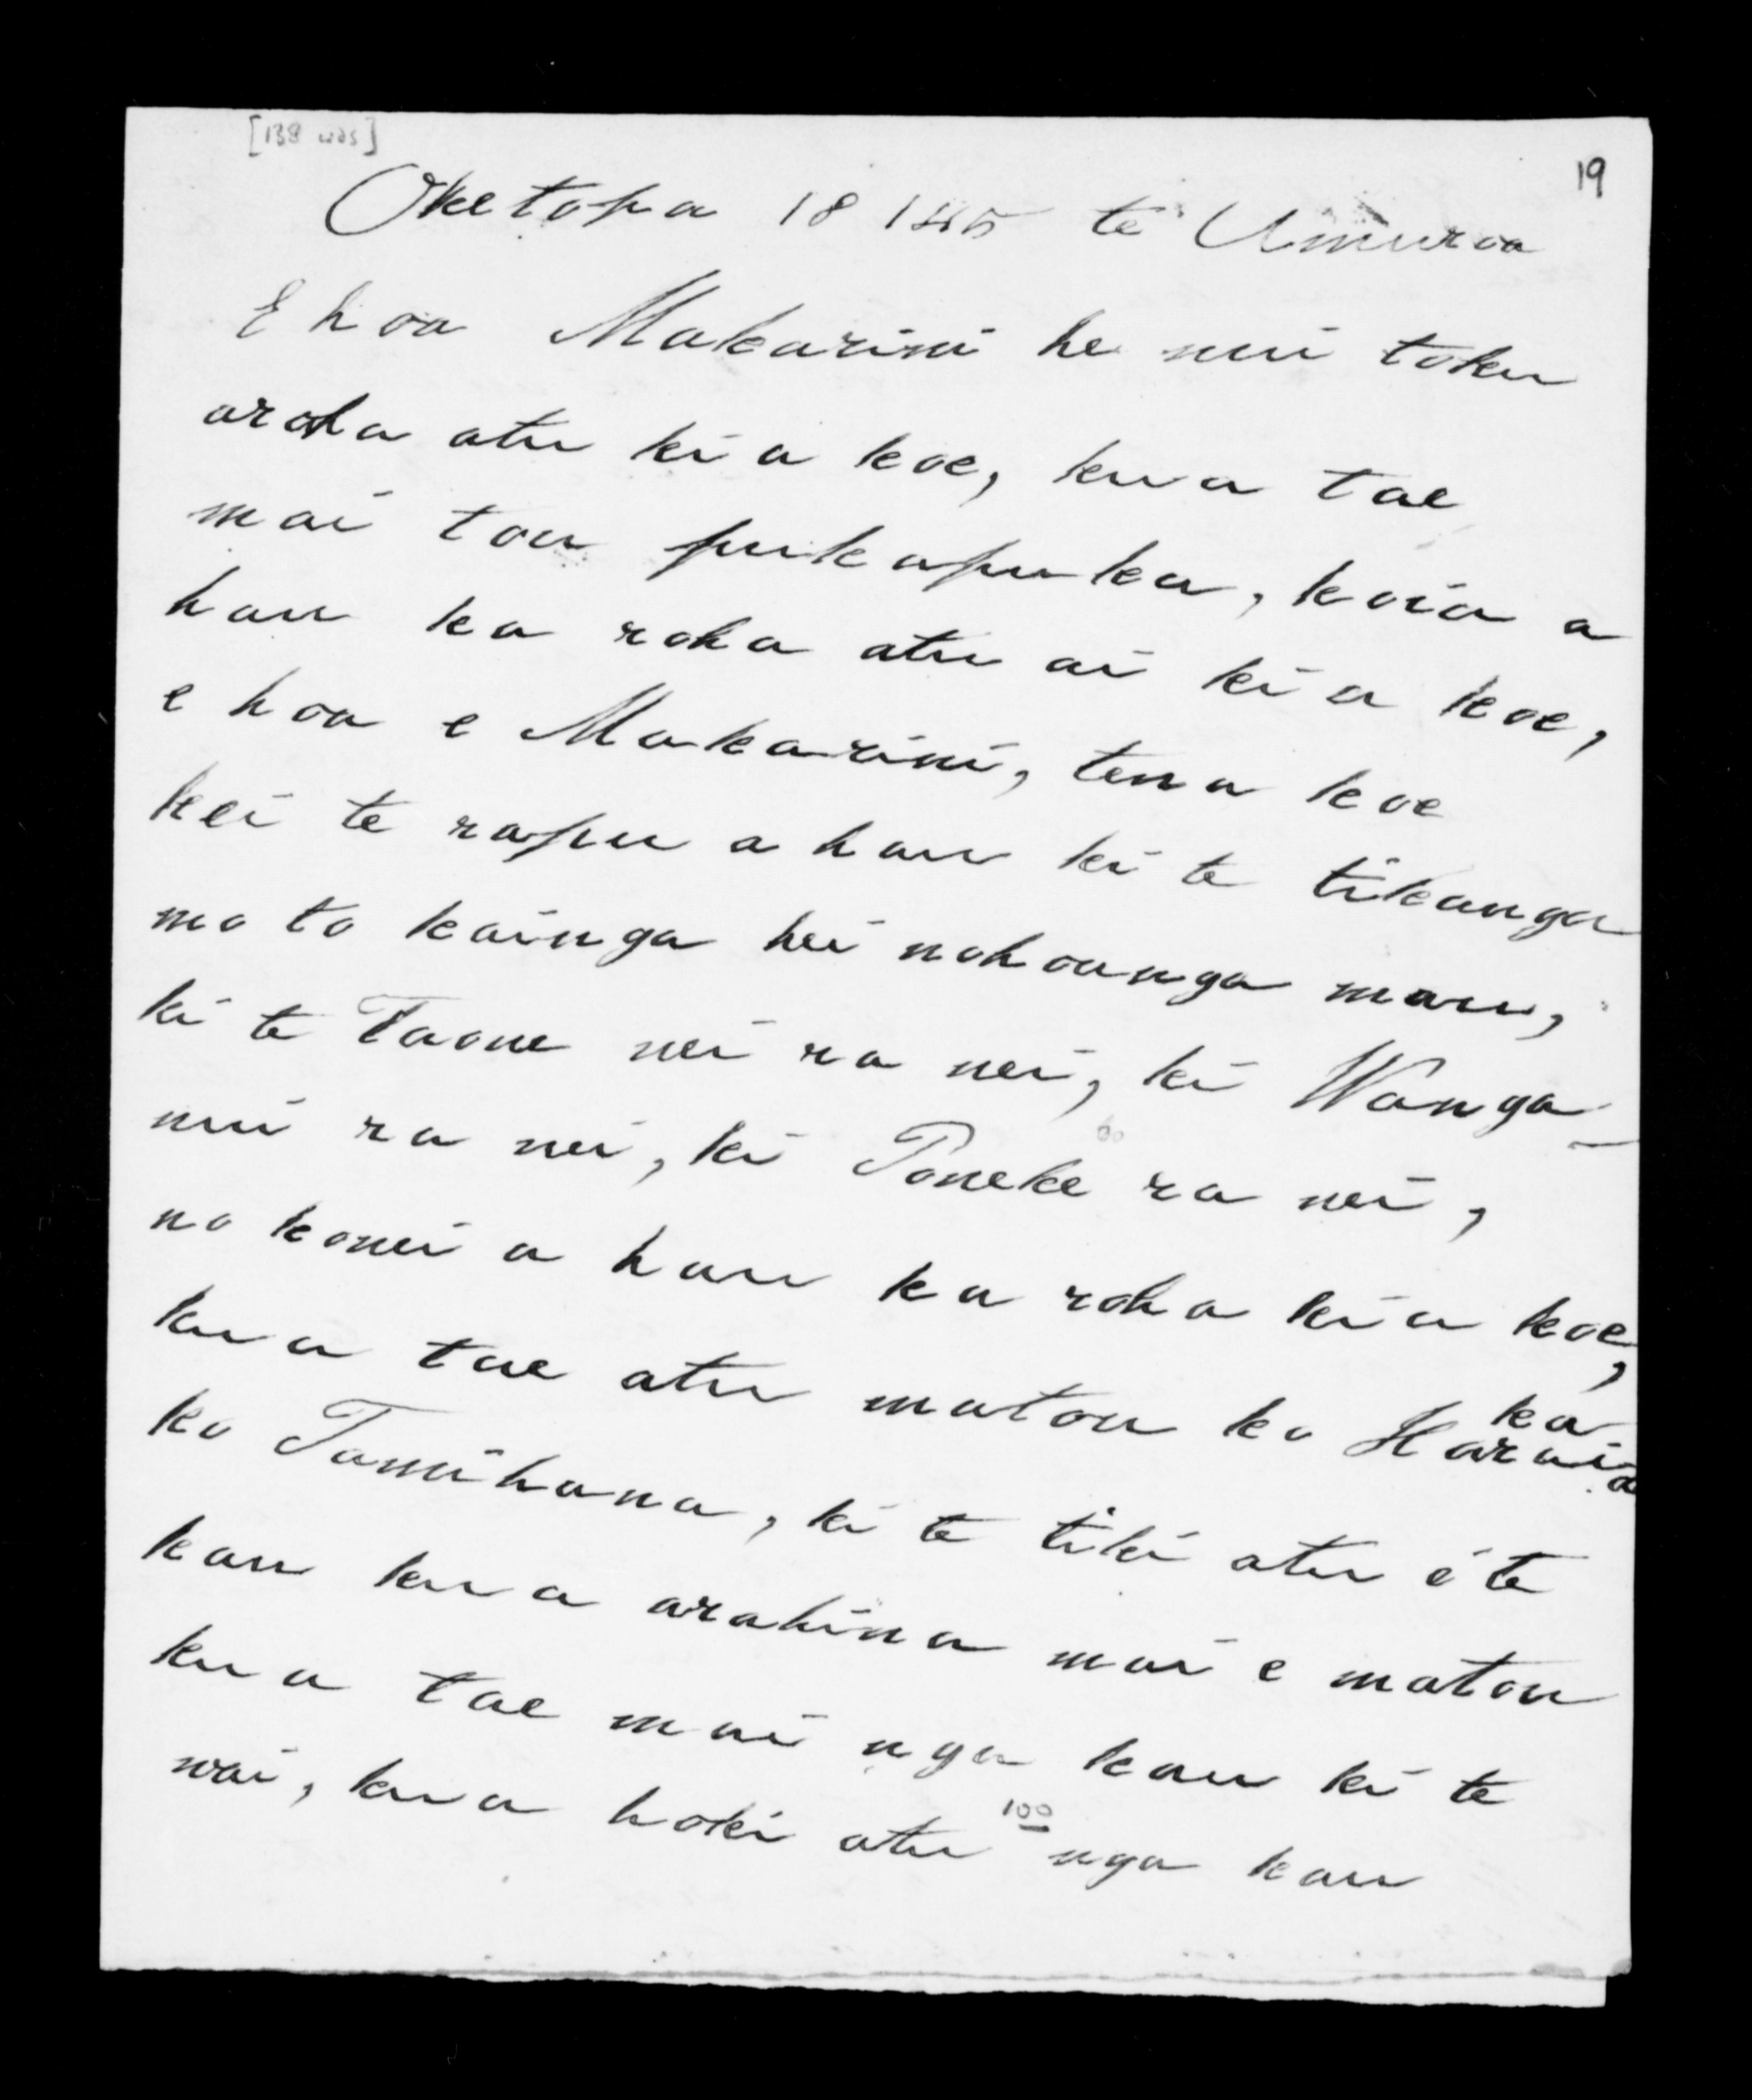 [138 wds]
19
Oketopa 18 1845 te Umuroa
E hoa Makarini he nui toku
aroha atu ki a koe, kua tae
mai tou pukapuka, koia a
hau ka roha atu ai ki a koe,
e hoa e Makarini, tena koe
kei te rapu a hau ki te tikanga
mo to kainga hei nohoanga mau,
ki te Taone nei ra nei, ki Wanga-
nui ra nei, ki Poneke ra nei,
no konei a hau ka roha ki a koe,
kua tae atu matou ko Haraia
ko Tamihana, ki te tiki atu i te
kau kua arahina mai e matou
kua tae mai nga kau ki te
wai, kua hoki atu nga kau
100